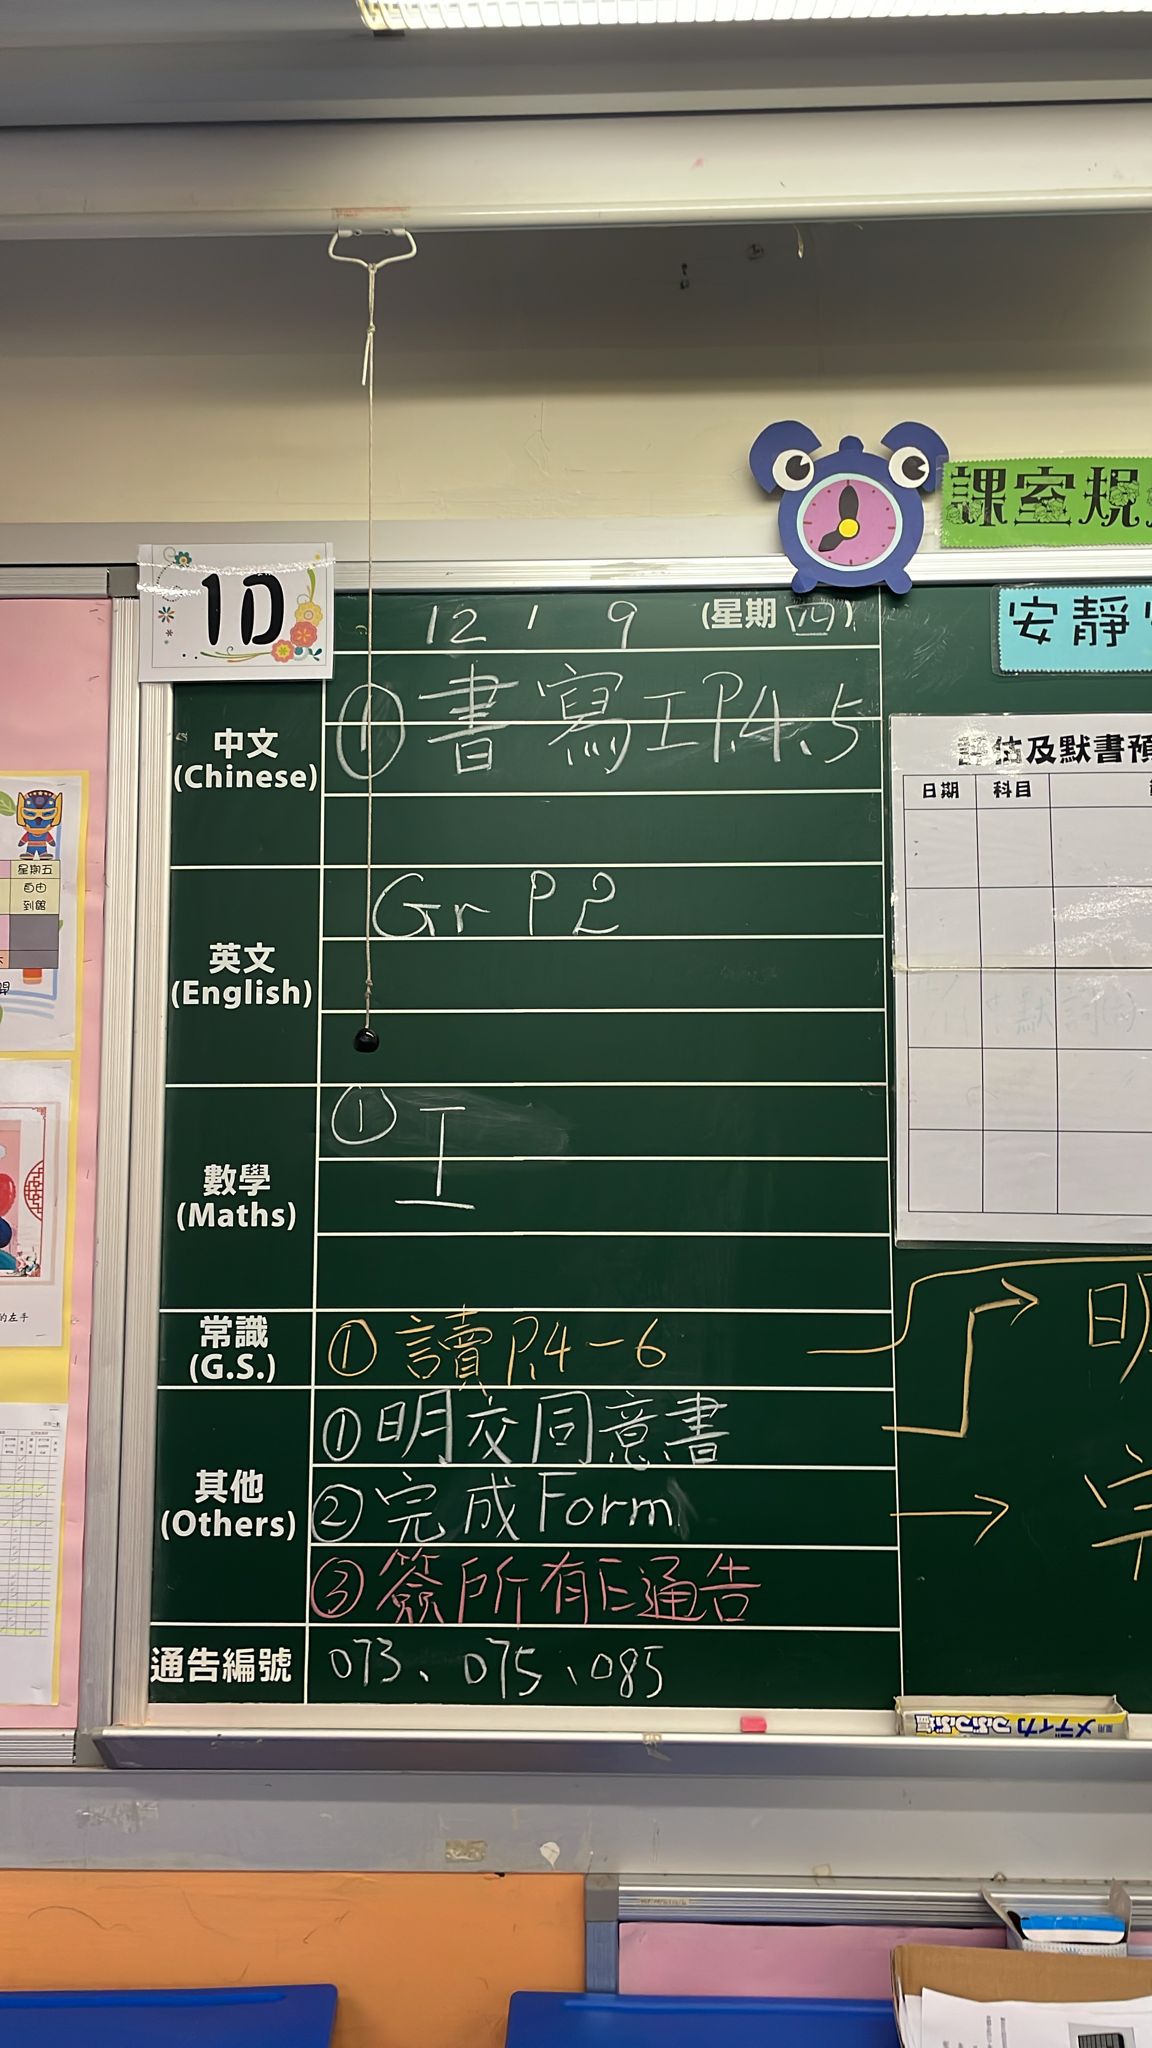 課室規
1D
12 , 9 (星期四)
安靜
中文
(Chinese)
① 書寫工P.4、5
評估及默書預
日期 科目
星期五
自由
到館
英文
(English)
Gr P.2
數學
(Maths)
① 工
的左手
常識
(G.S.)
① 讀P.4-6
其他
(Others)
① 明交同意書
② 完成Form
③ 簽所有E通告
通告編號
073、075、085
メディカ つぶつぶ塩